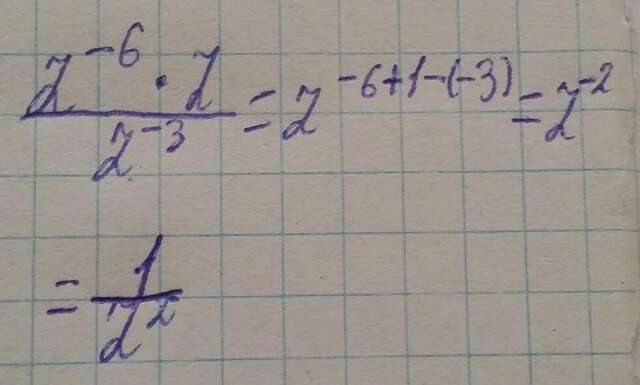 z⁻⁶ · z / z⁻³ = z⁻⁶⁺¹⁻⁽⁻³⁾ = z⁻²
= 1 / z²